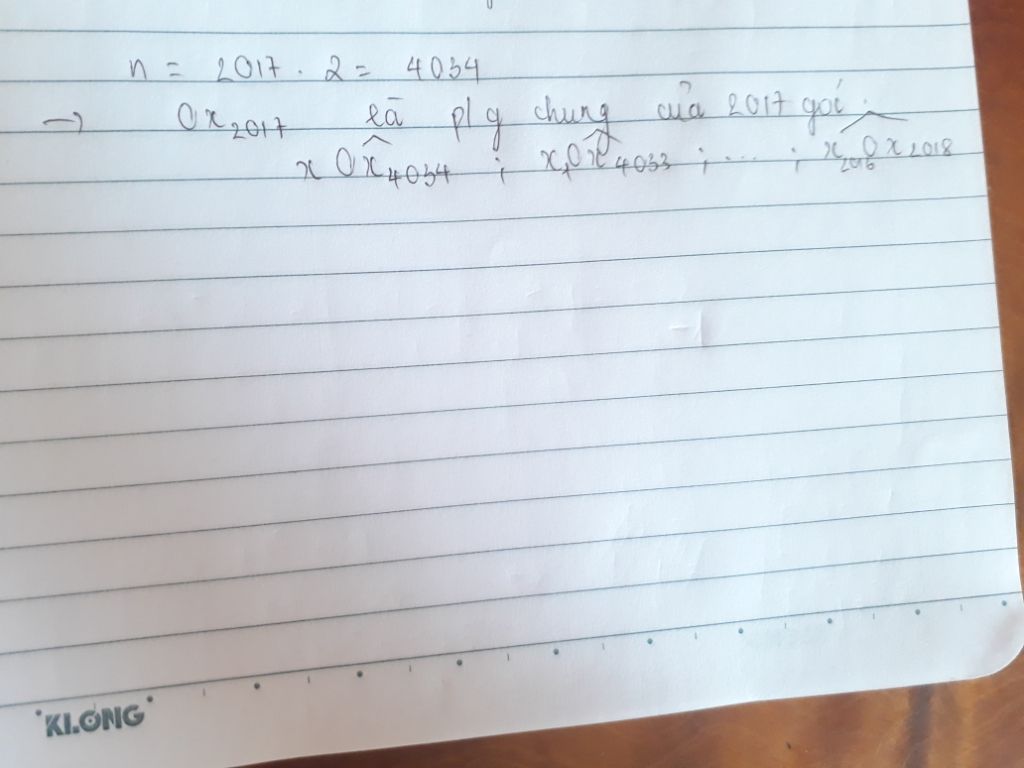 n = 2017 . 2 = 4034
→ Ox₂₀₁₇ là p/g chung của 2017 gói :
xOx̂₄₀₃₄ ; x₁Ox̂₄₀₃₃ ; ... ; x₂₀₁₆Ôx₂₀₁₈
KLONG